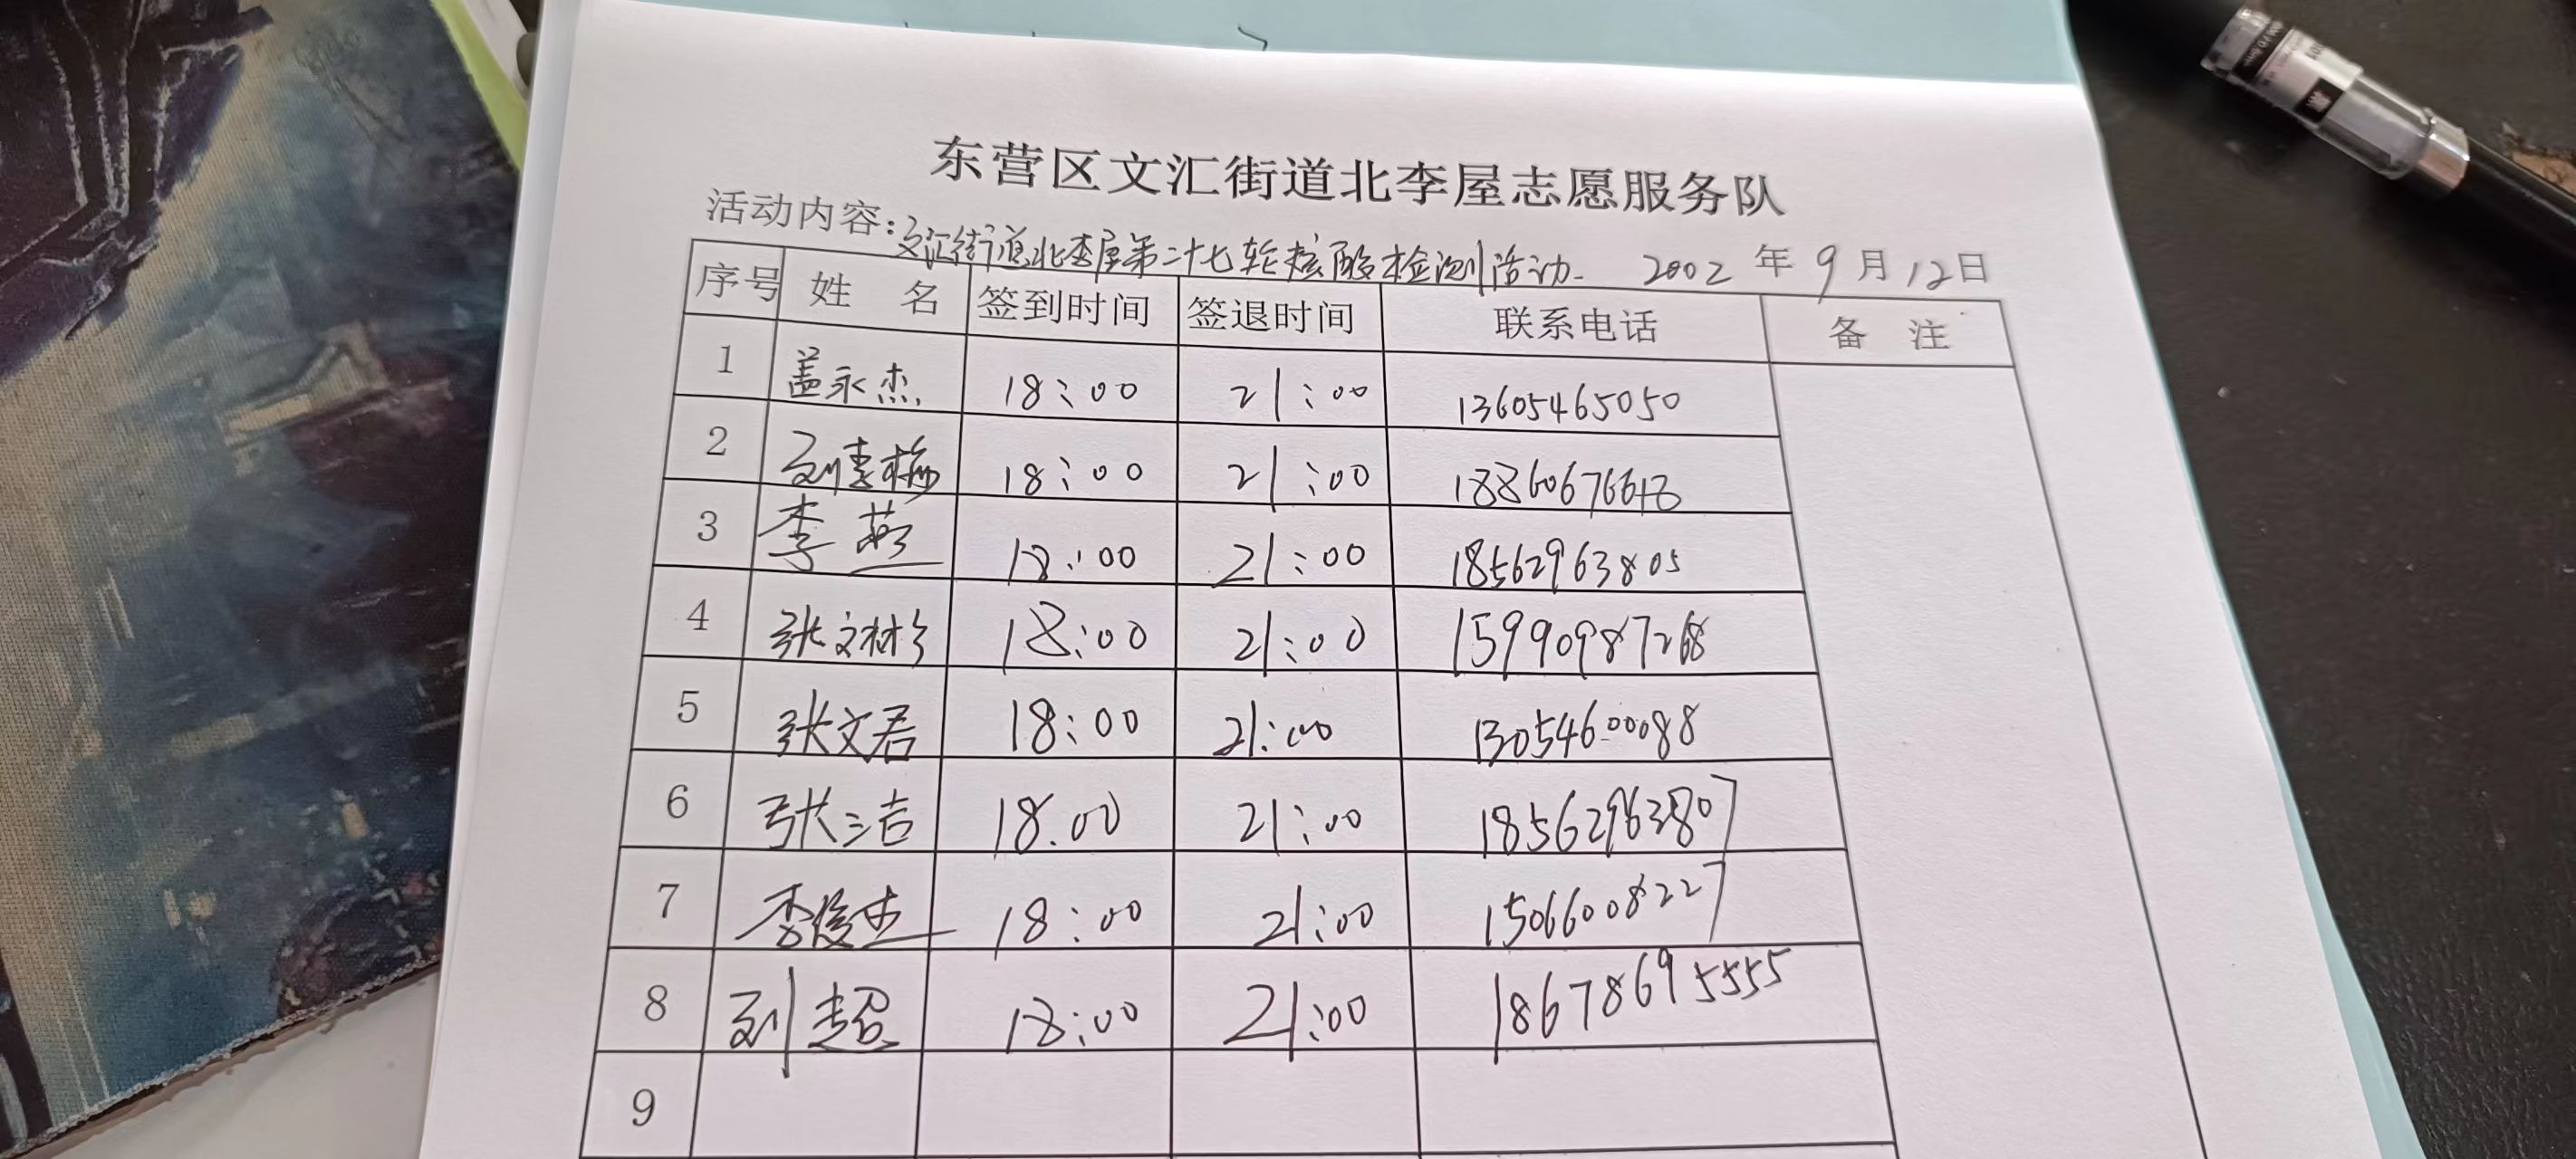 东营区文汇街道北李屋志愿服务队
活动内容:文汇街道北李屋第二十七轮核酸检测活动. 2002 年 9 月 12 日
序号 姓 名 签到时间 签退时间 联系电话 备 注
1 盖永杰 18:00 21:00 13605465050
2 刘 18:00 21:00
3 李燕 18:00 21:00 18562963805
4 张文彬 18:00 21:00 15990987268
5 张文君 18:00 21:00 13054600088
6 张三吉 18.00 21:00 18562963807
7 李俊杰 18:00 21:00 15066008227
8 刘超 18:00 21:00 18678695555
9